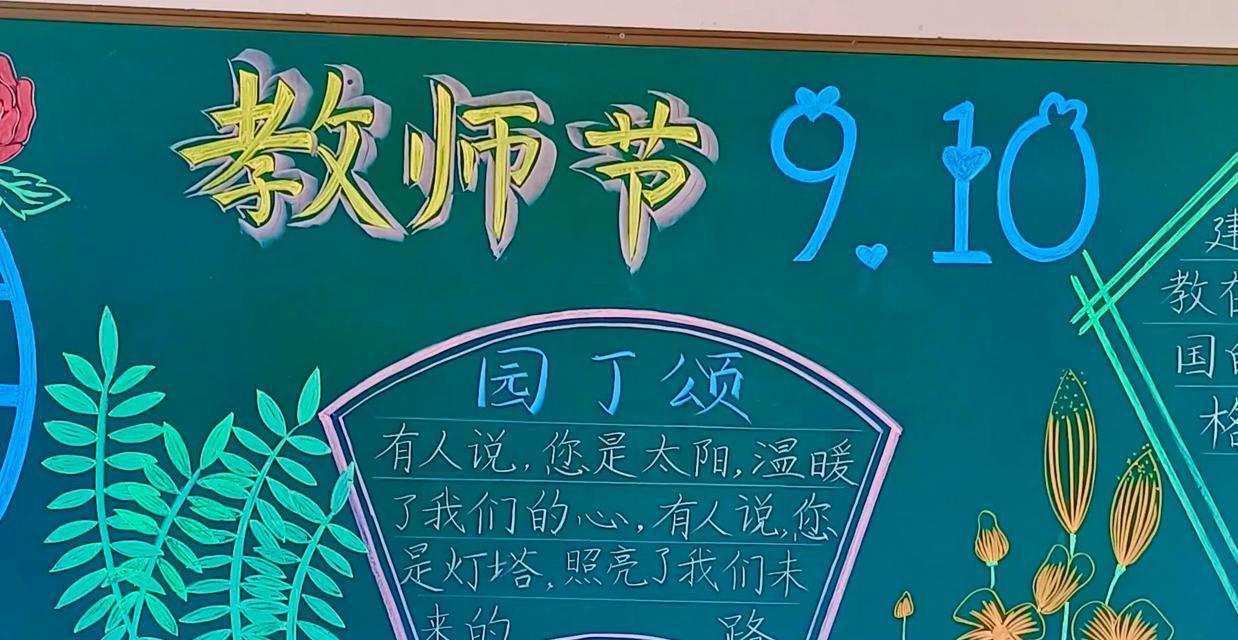 教师节 9.10
园丁颂
有人说，您是太阳，温暖
了我们的心，有人说，您
是灯塔，照亮了我们未
来的 路
建
教在
国的
格